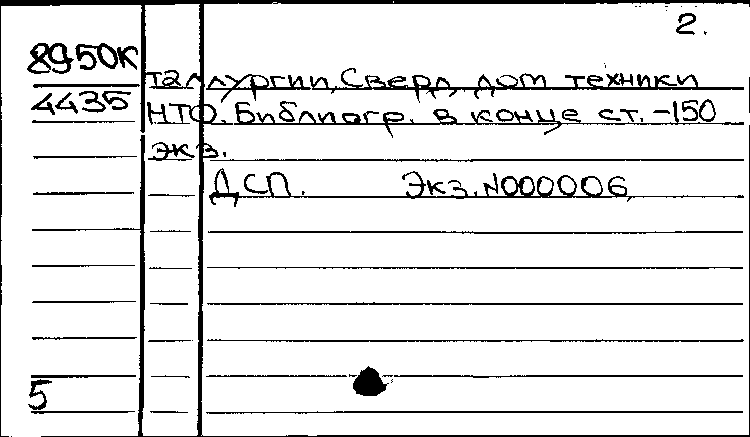 2.
8950К
таллургии, Сверд, дом техники
4435
НТО. Библиогр. в конце ст. -150
экз.
ДСП. Экз. N000006,
5